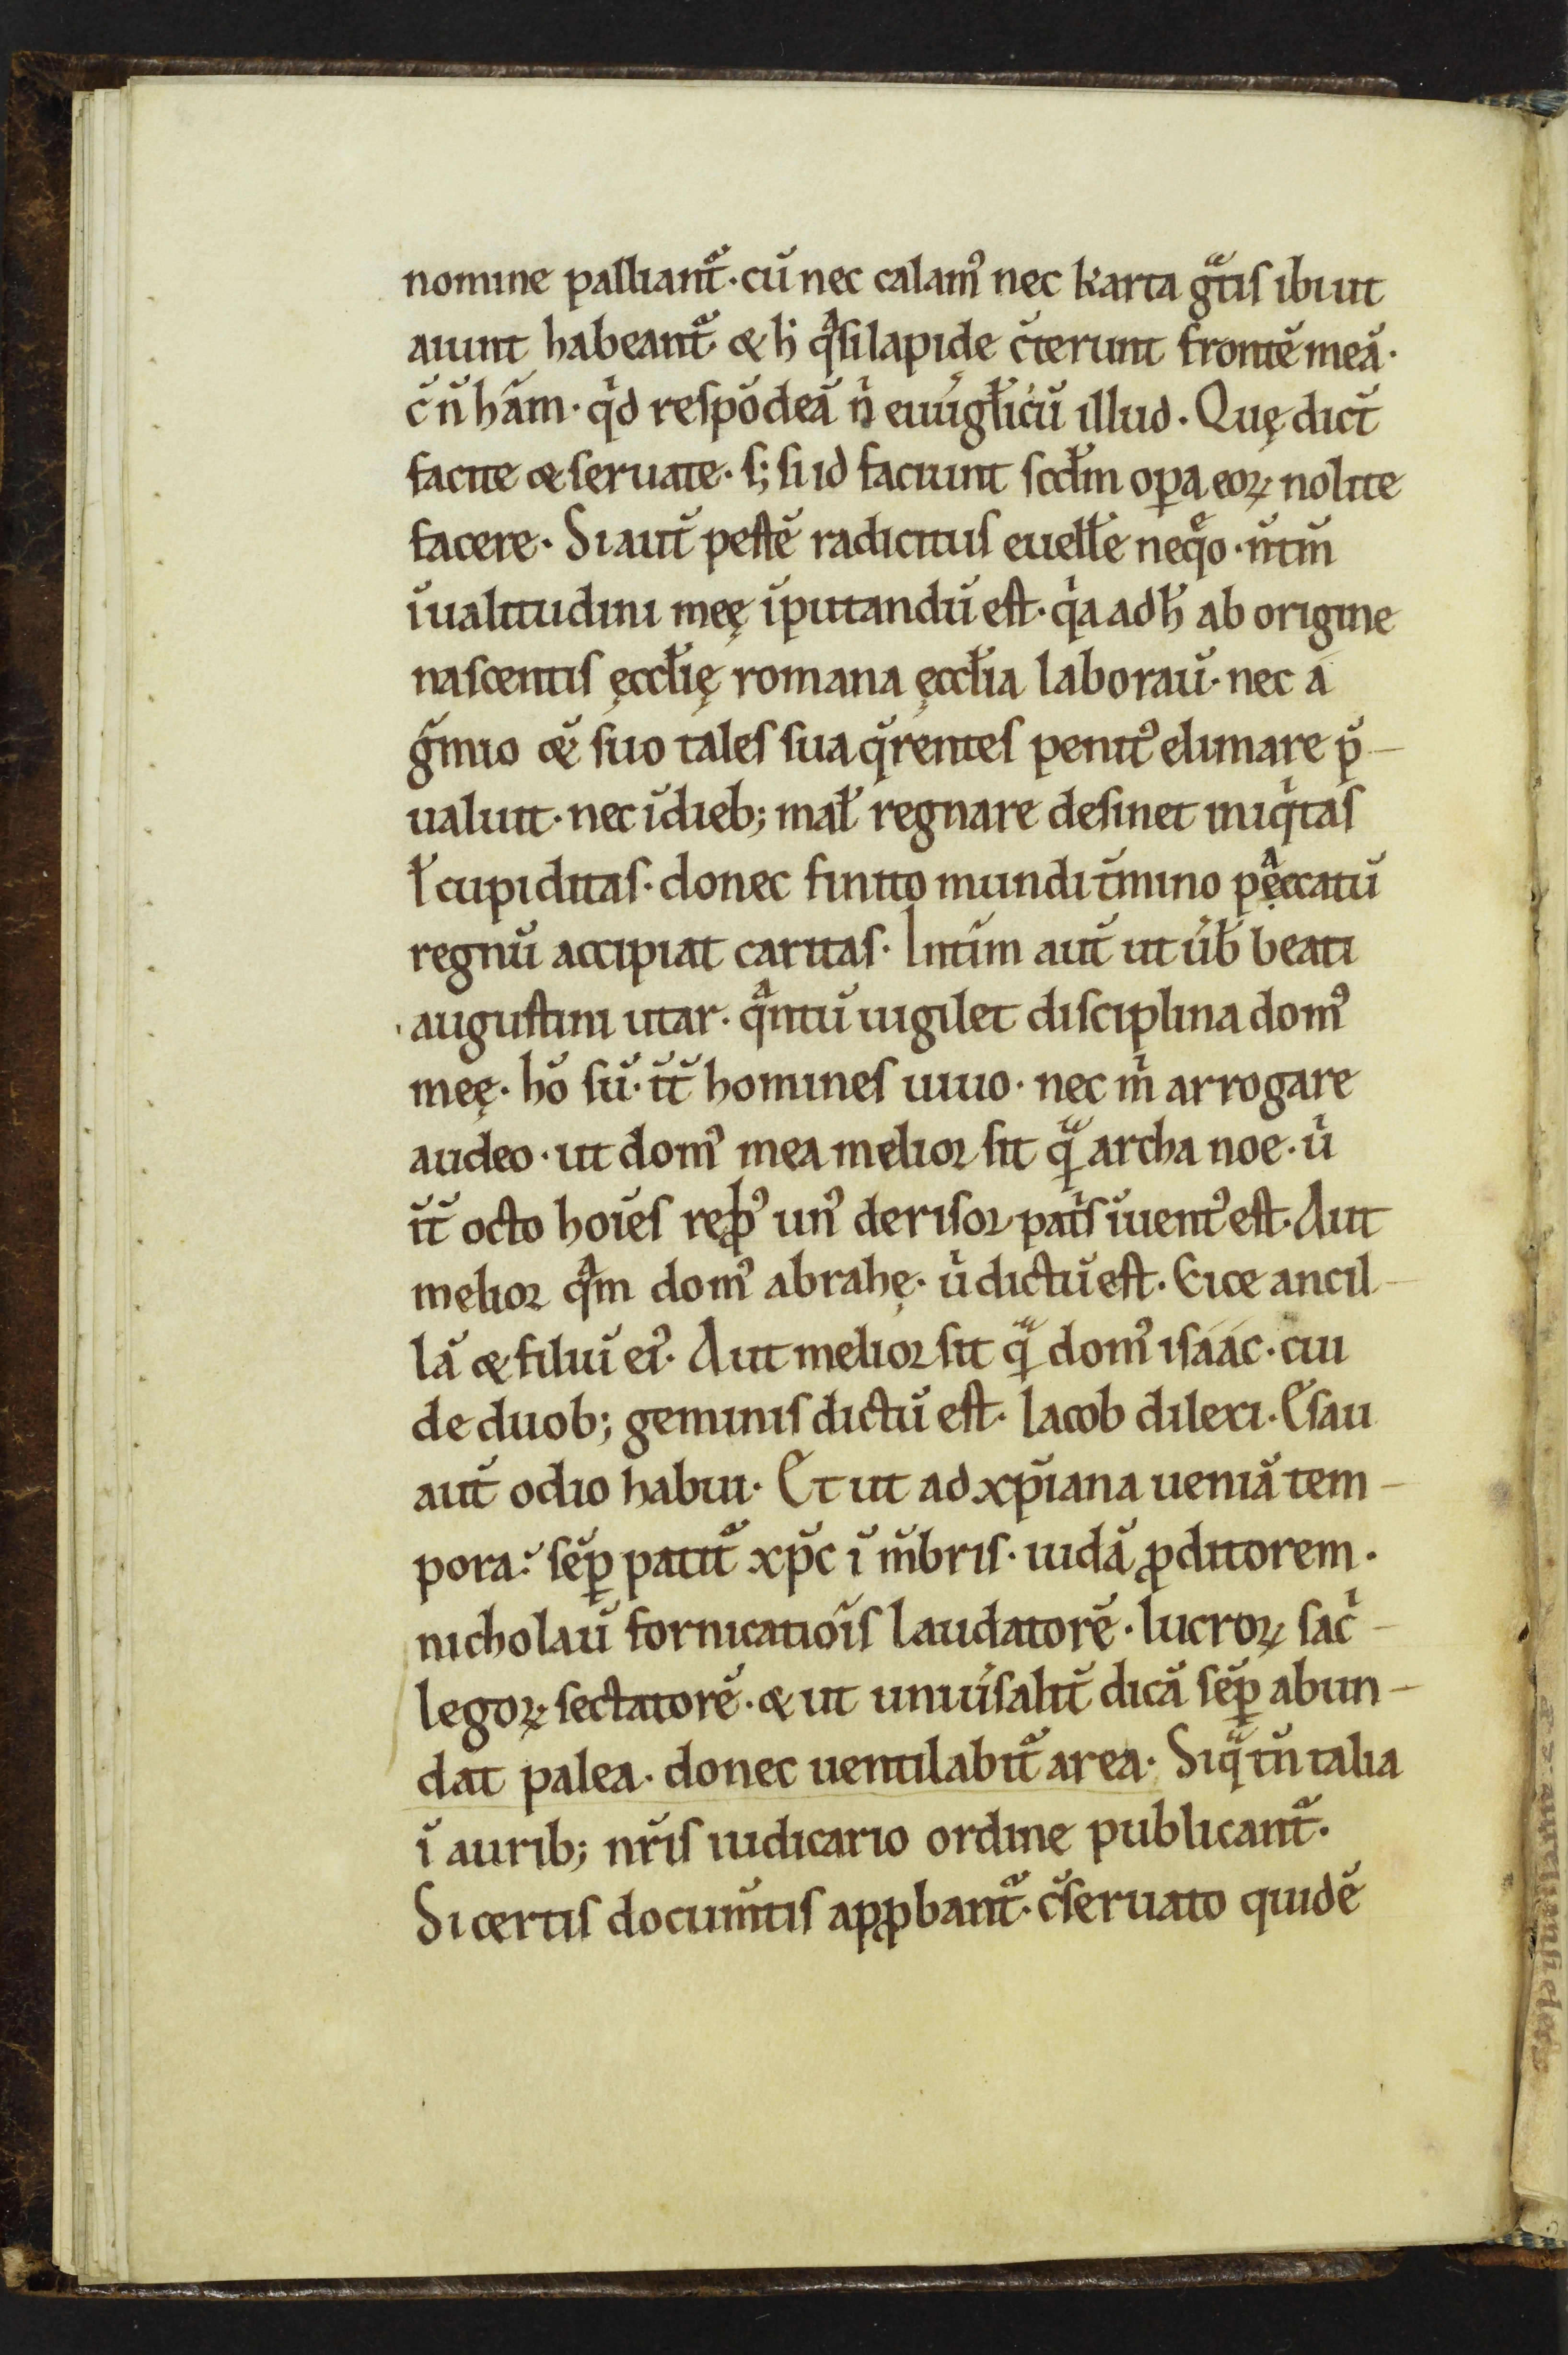 nomine palliant᷑· cū nec calamꝰ nec karta gᷓtis ibi ut
aiunt habeant᷑· & h̄ qᷓsi lapide c̄terunt frontē meā·
c̄ n̄ habeam· qͥd respōdeā nͥ euuāgl̄icū illud· Quę dict̄
facite & seruate· s; si id faciunt scd̄m oꝑa eoꝝ nolite
facere· Si aut̄ pestē radicitus euell̄e neqͦo· n̄ tm̄
īualitudini meę īputandū est· qͥa adh̄ ab origine
nascentis ęccl̄ię romana ęccl̄ia laborau̅· nec a
g̅mio &̅ suo tales sua q̅rentes penitꝰ elimare p̅-
ualuit· nec ī dieb; mal̄ regnare desinet iniqͥtas
ł cupiditas· donec finito mundi t̅mino peccatū
regnū accipiat caritas· Int̅im aut̄ ut u̅b̅ beati
augustini utar· qᷓntū uigilet disciplina domꝰ
meę· hō sū· it̄ homines uiuo· nec mͥ arrogare
audeo· ut domꝰ mea melior sit qᷓ archa noe· uͥ
it̄ octo hoīes reꝓbꝰ unꝰ derisor patͥs īuentꝰ est· Aut
melior qᷓm domꝰ abrahę· uͥ dictū est· Eice ancil-
lā & filiū eiꝰ· Aut melior sit qᷓ domꝰ isáác· cui
de duob; geminis dictū est· Iacob dilexi· Esau
aut̄ odio habui· Et ut ad xp̅iana ueniā tem-
pora· sēꝑ patit᷑ xp̅c ī m̅bris· iudā ꝓditorem·
nicholaū fornicatiōis laudatorē· lucroꝝ sacͥ-
legoꝝ sectatorē· & ut uniu̅salit̅ dicā sēꝑ abun-
dat palea· donec uentilabit᷑ area· Siqᷓ tn̄ talia
ī aurib; nr̅is iudicario ordine publicant᷑·
Si certis docum̅tis apꝓbant᷑· c̅seruato quidē